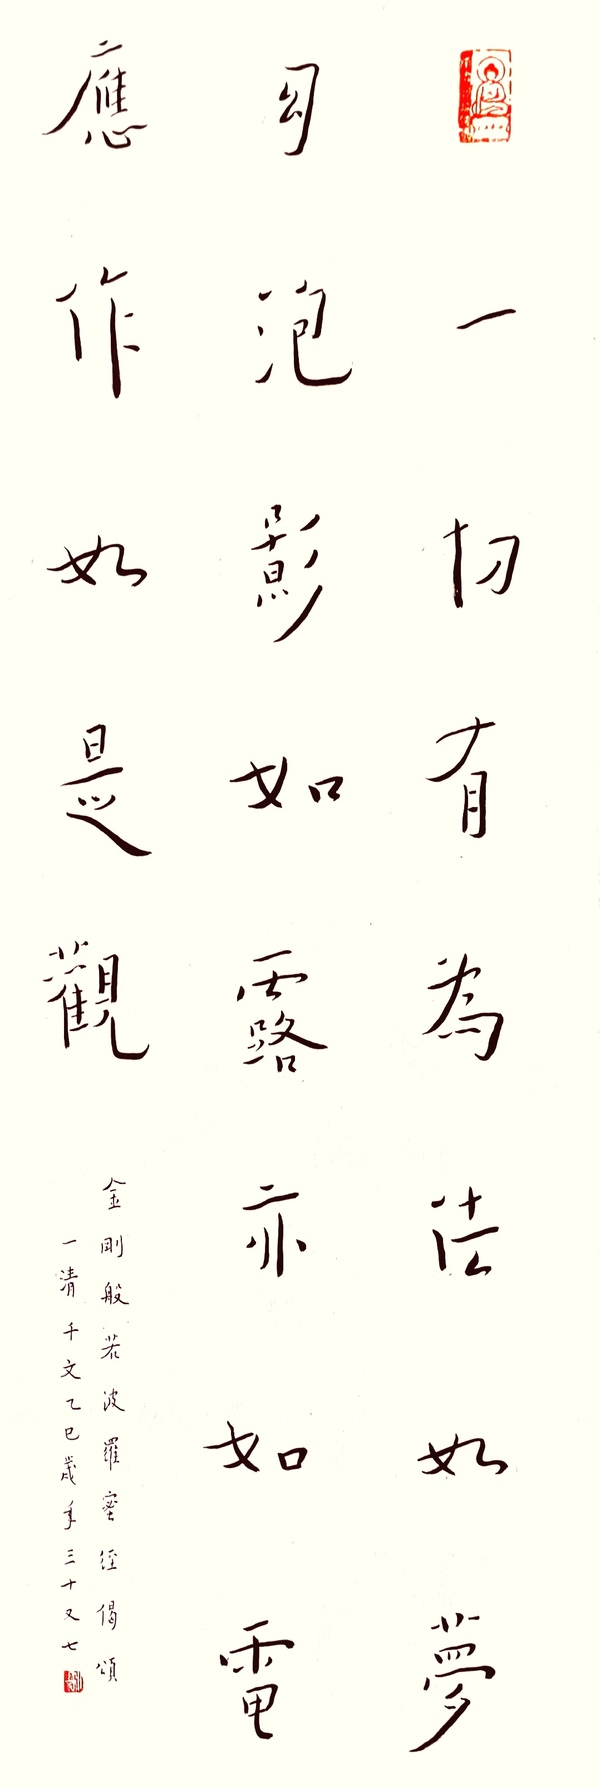 一切有為法如夢
幻泡影如露亦如電
應作如是觀
金剛般若波羅蜜經偈頌
一清千文乙巳歲年三十又七